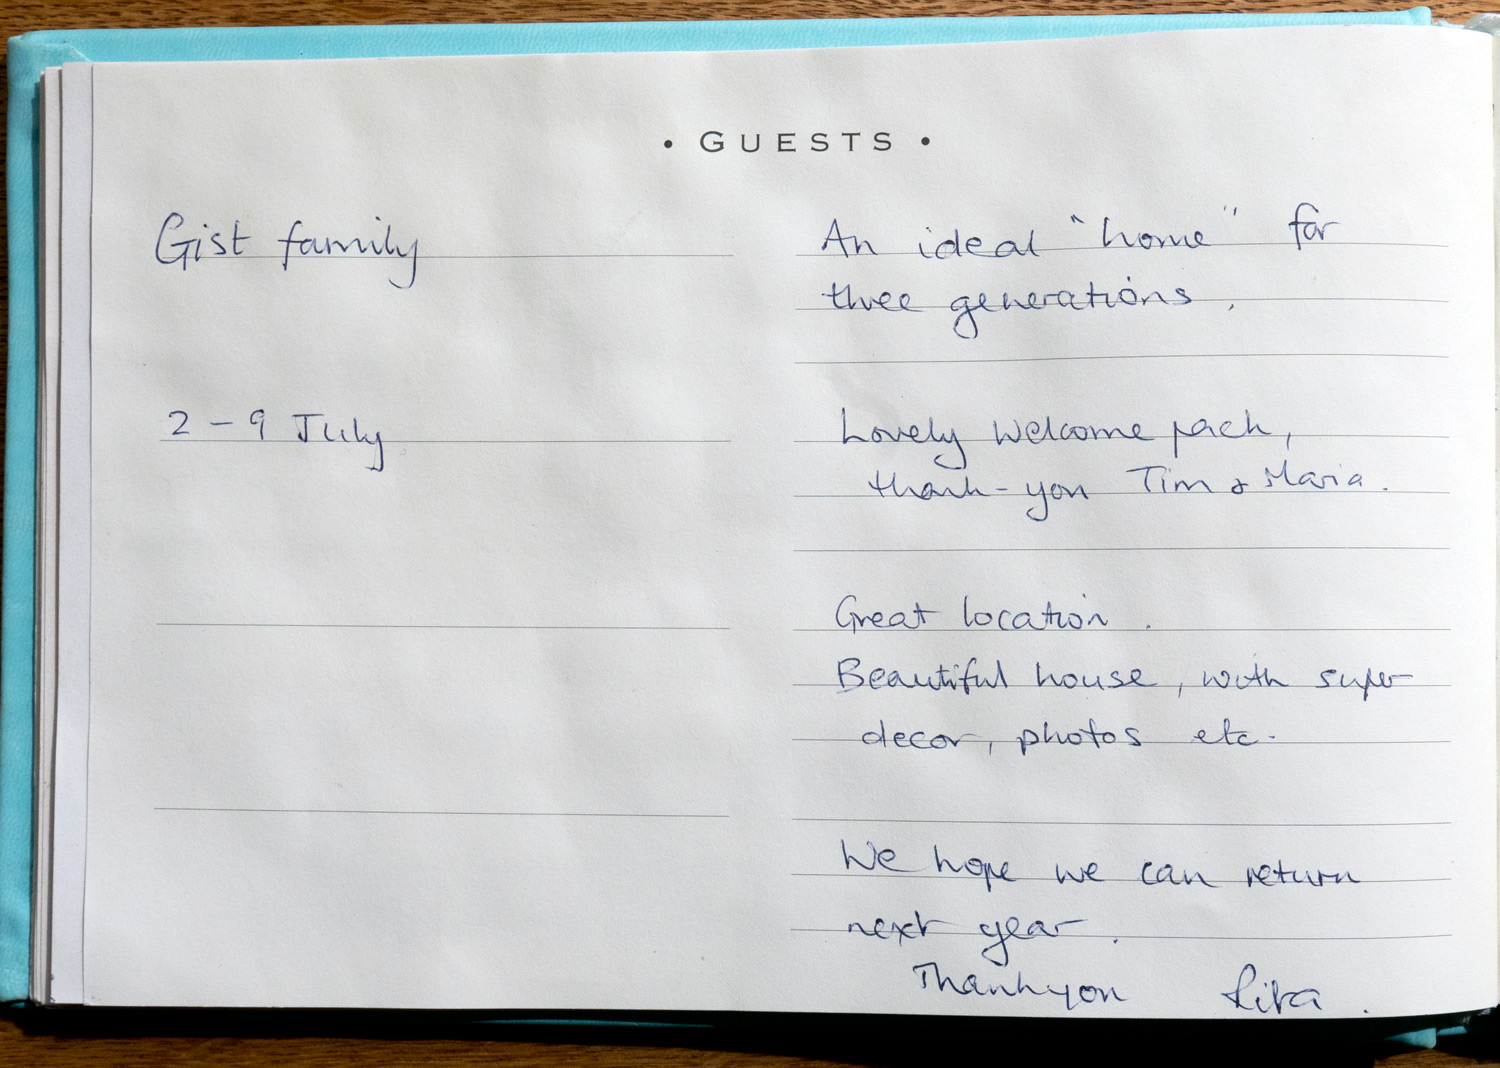 • GUESTS •
Gist family
2 - 9 July
An ideal "home" for
three generations.
Lovely welcome pack,
thank-you Tim & Maria.
Great location.
Beautiful house, with super
decor, photos etc.
We hope we can return
next year.
Thankyou